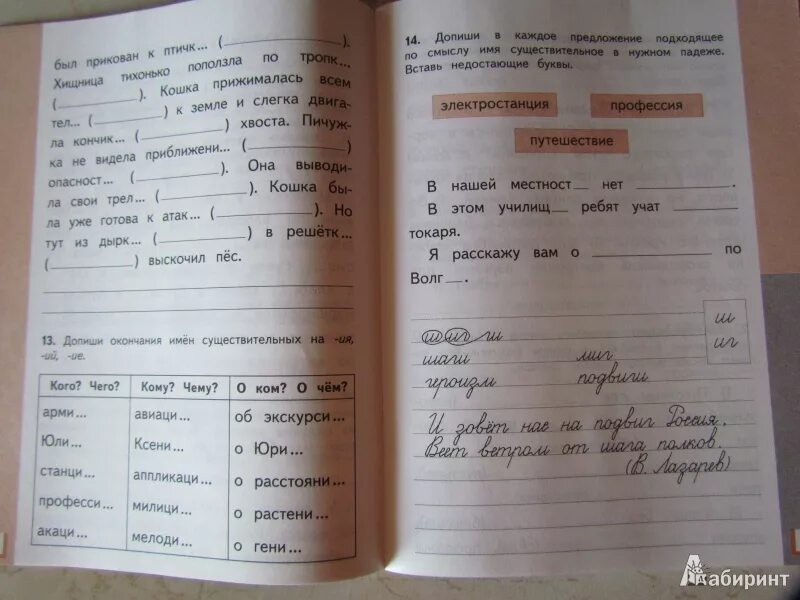 был прикован к птичк... (__________).
Хищница тихонько поползла по тропк...
(__________). Кошка прижималась всем
тел... (__________) к земле и слегка двига-
ла кончик... (__________) хвоста. Пичуж-
ка не видела приближени... (__________)
опасност... (__________). Она выводи-
ла свои трел... (__________). Кошка бы-
ла уже готова к атак... (__________). Но
тут из дырк... (__________) в решётк...
(__________) выскочил пёс.
13. Допиши окончания имён существительных на -ия,
-ий, -ие.
Кого? Чего? Кому? Чему? О ком? О чём?
арми... авиаци... об экскурси...
Юли... Ксени... о Юри...
станци... аппликаци... о расстояни...
професси... милици... о растени...
акаци... мелоди... о гени...
14. Допиши в каждое предложение подходящее
по смыслу имя существительное в нужном падеже.
Вставь недостающие буквы.
электростанция профессия
путешествие
В нашей местност__ нет __________.
В этом училищ__ ребят учат __________
токаря.
Я расскажу вам о __________ по
Волг__.
ш иг ги ш
шаги миг иг
героизм подвиги
И зовёт нас на подвиг Россия.
Веет ветром от шага полков.
(В. Лазарев)
Лабиринт